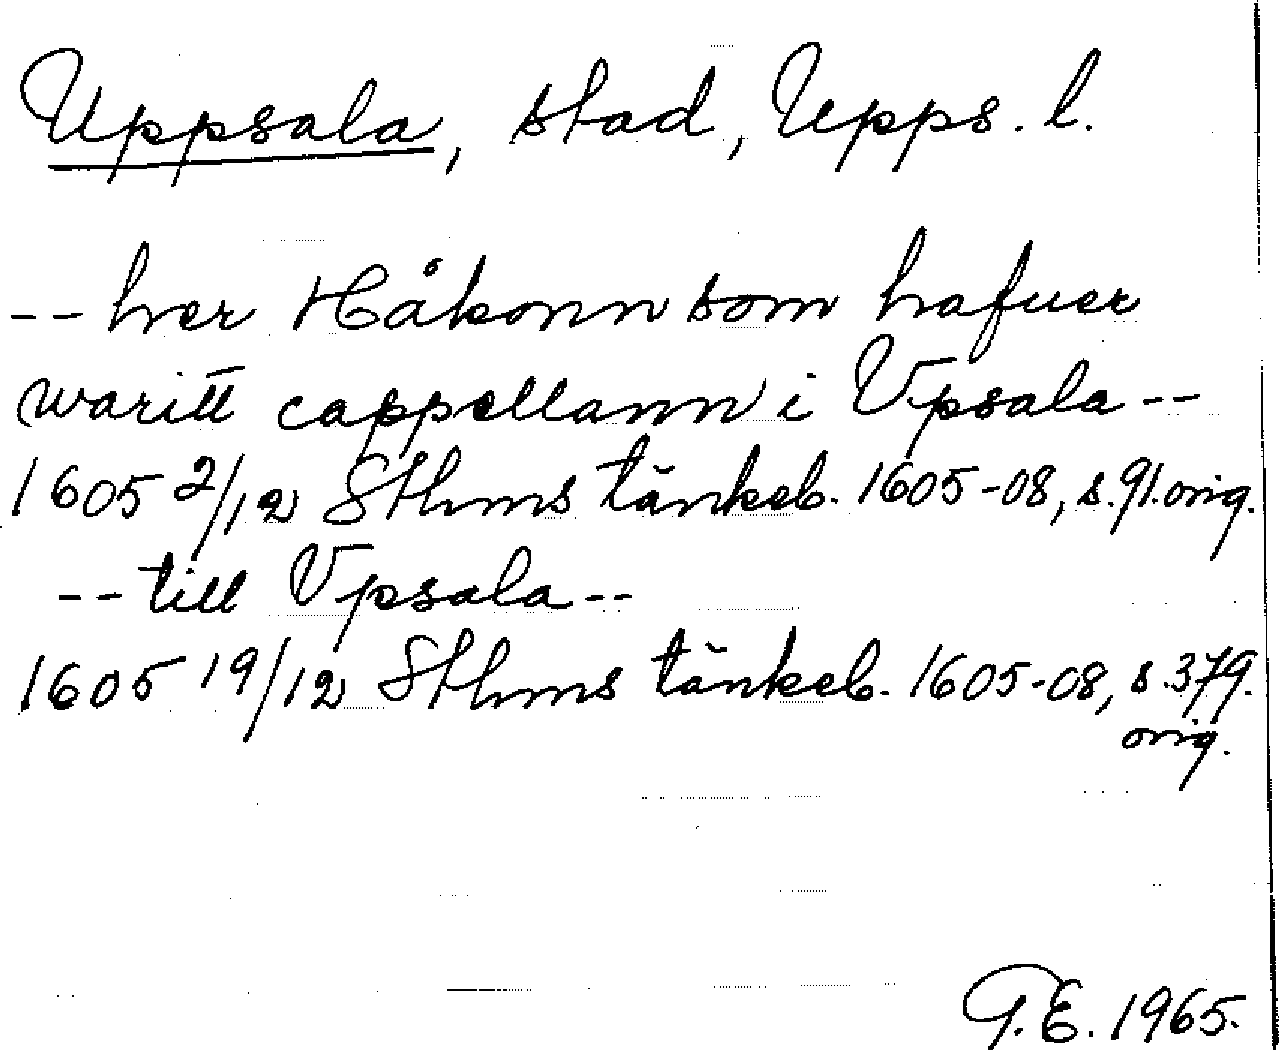 Uppsala, stad, Upps. l.
-- her Håkonn som hafuer
waritt cappellann i Vpsala --
1605 2/12 Sthms tänkeb. 1605-08, s.91.orig.
-- till Vpsala --
1605 19/12 Sthms tänkeb. 1605-08, s.379.
orig.
G.E. 1965.